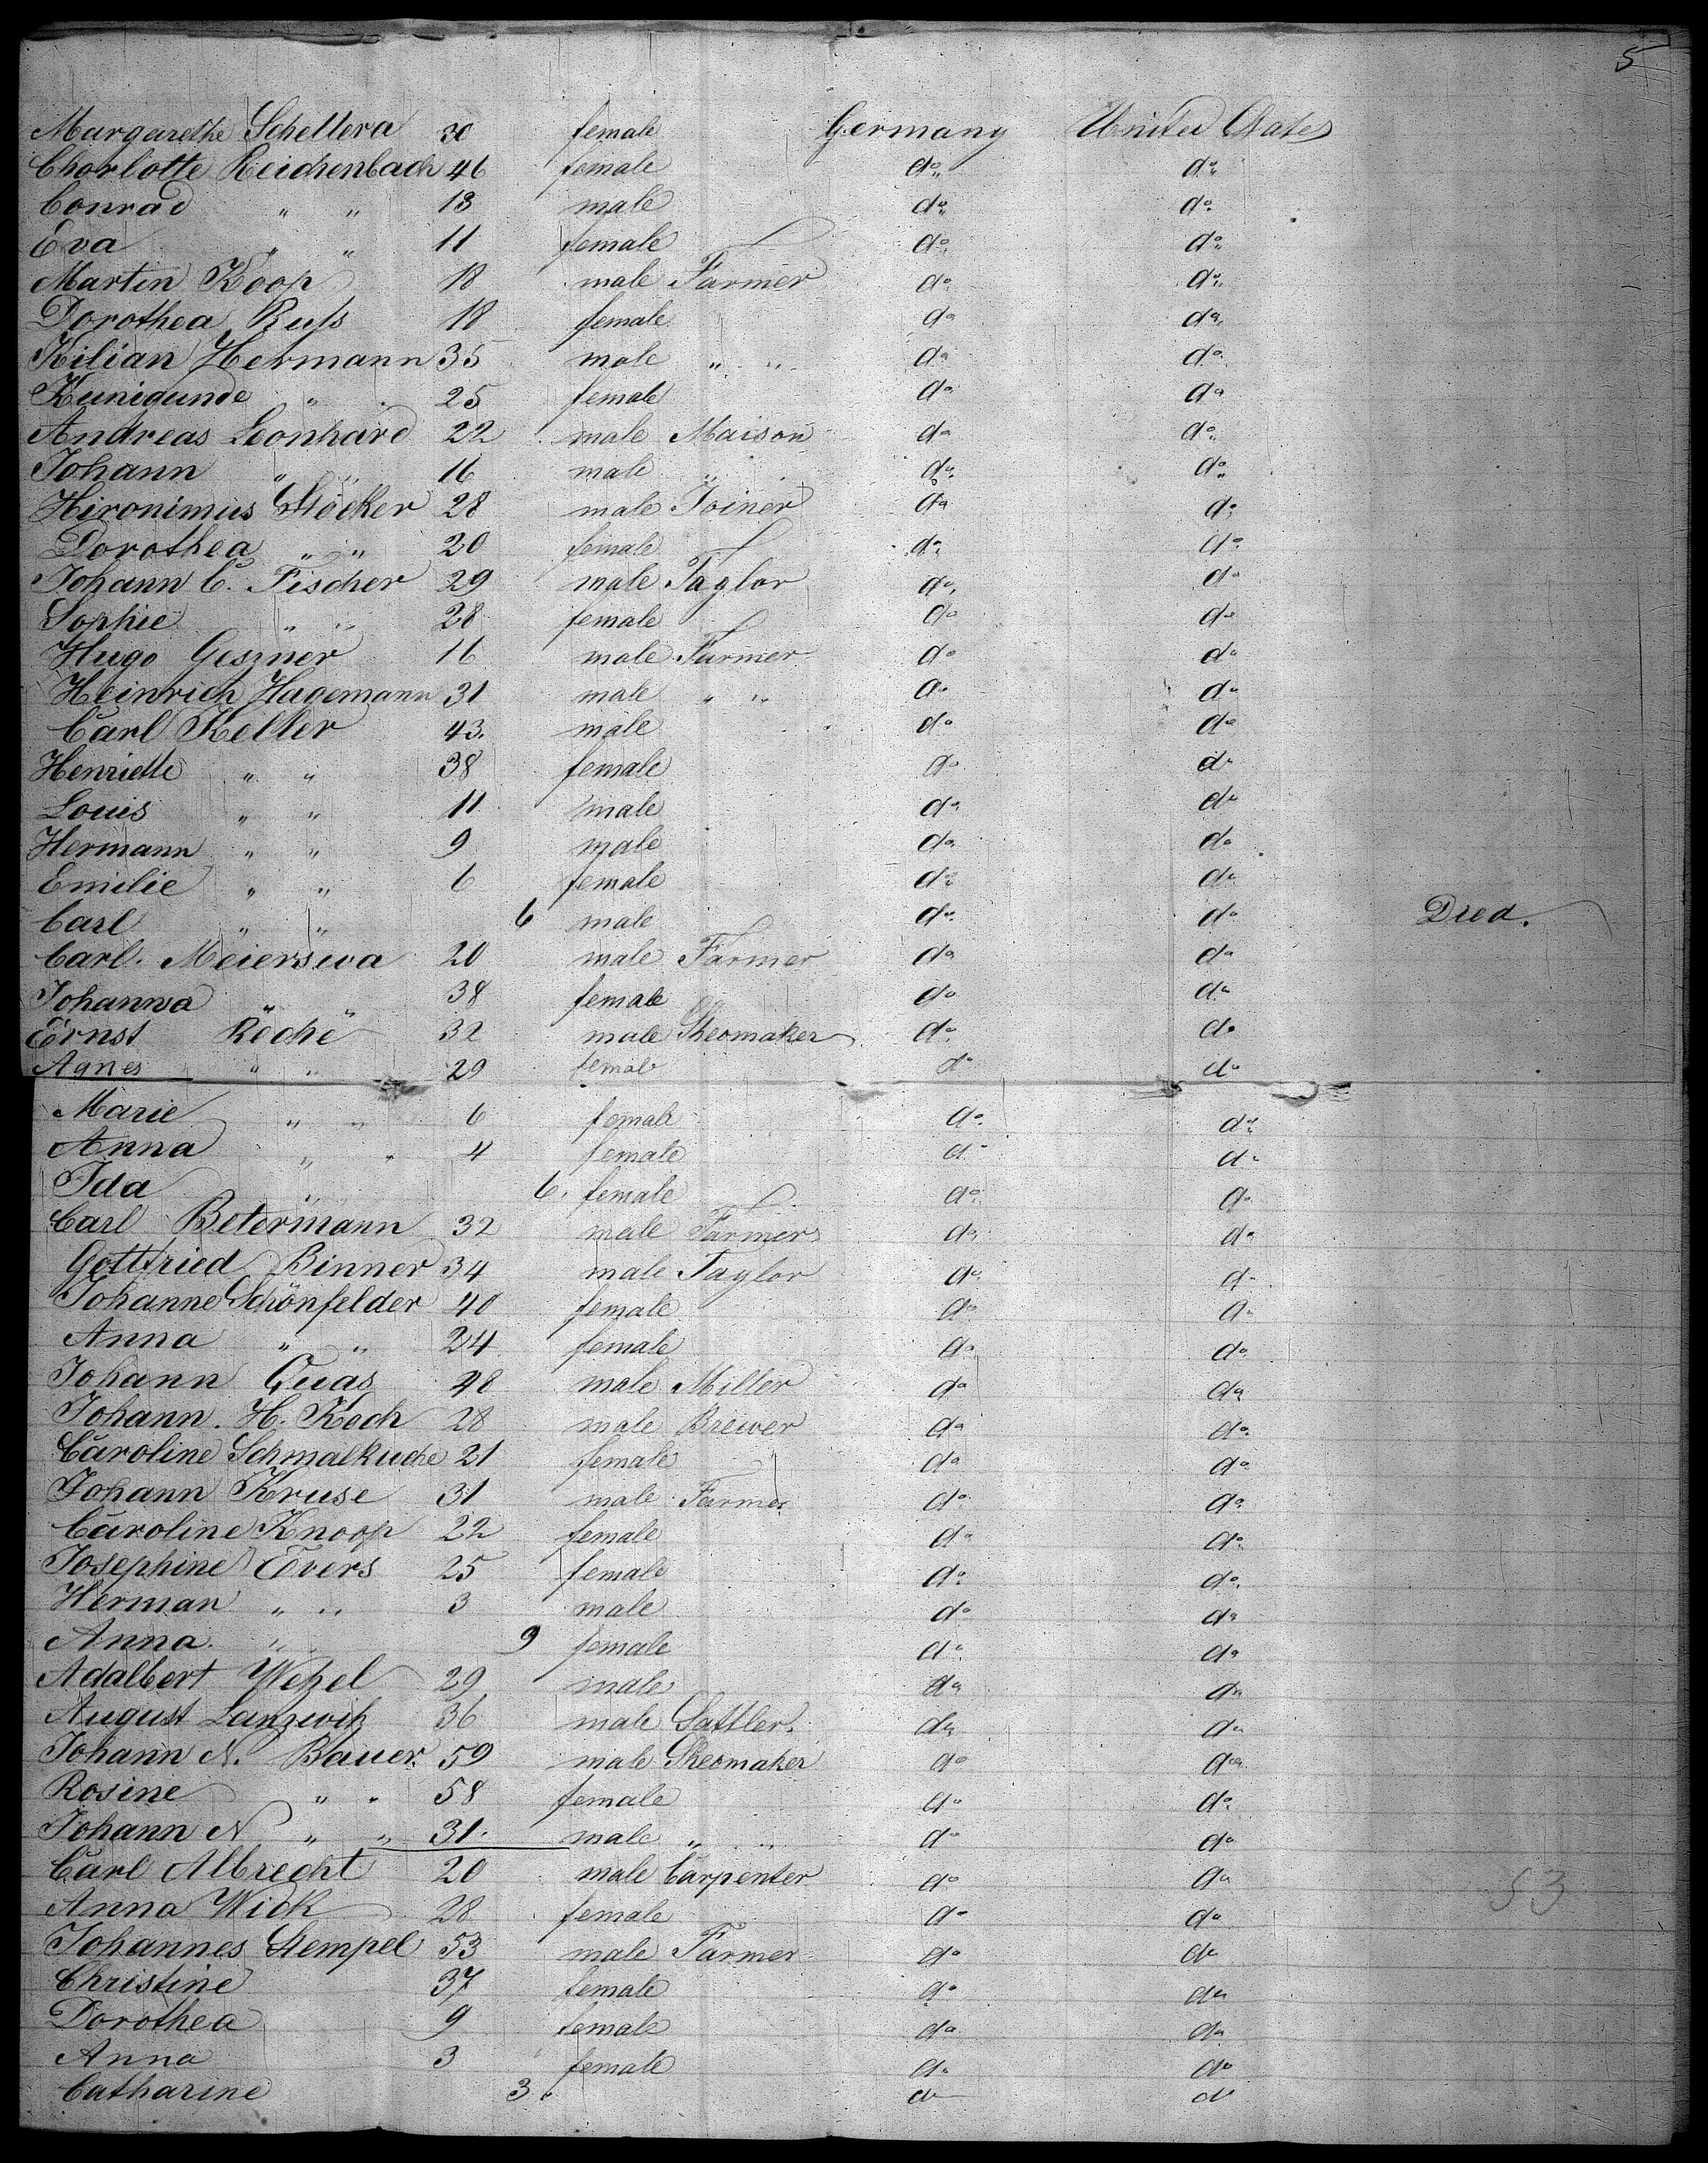 5
Margarethe Schellera 30 female Germany United States
Charlotte Reichenbach 46 female do. do.
Conrad " " 13 male do. do.
Eva " " 11 female do. do.
Martin Koop 18 male Farmer do. do.
Dorothea Rufs 18 female do do.
Kilian Hermann 35 male " " do do.
Kunigunde " 25 female do do
Andreas Leonhard 22 male Maison do do.
Johann " " 16 male " do. do.
Hironimus Stöcker 28 male Joiner do do.
Dorothea " " 20 female do. do.
Johann C. Fischer 29 male Taylor do. do
Sophie " " 28 female do do
Hugo Geszner 16 male Farmer do do
Heinrich Hagemann 31 male " " do do
Carl Keller 43. male do do
Henriette " " 38 female do do
Louis " " 11 male do do
Hermann " " 9 male do do
Emilie " " 6 female do. do.
Carl " " 6 male do. do Died.
Carl. Meierseva 20 male Farmer do do
Johanna " " 38 female do do
Ernst Reche 32 male Sheomaker do. do
Agnes " " 29 female do do
Marie " " 6 female do. do.
Anna " " 4 female do do
Ida " 6. female do. do
Carl Betermann 32 male Farmer do. do.
Gottfried Binner 34 male Taylor do. do
Johanne Schönfelder 40 female do do
Anna " " 24 female do do.
Johann Quas 48 male Miller do do
Johann. H. Koch 28 male Brewer do do.
Caroline Schmalkuche 21 female do do
Johann Kruse 31 male Farmer do. do
Caroline Knoop 22 female do do.
Josephine Evers 25 female do. do.
Herman " " 3 male do do
Anna. " 9 female do. do
Adalbert Wetzel 29 male do do
August Lanzwitz 36 male Sattler. do do
Johann N. Bauer. 59 male Sheomaker do do
Rosine " " 58 female do do.
Johann N " " 31. male " " do do
Carl Albrecht 20 male Carpenter do do
53
Anna Wick 28 female do do
Johannes Stempel 53 male Farmer do do
Christine 37 female do do
Dorothea 9 female do do
Anna 3 female do. do
Catharine 3. do do